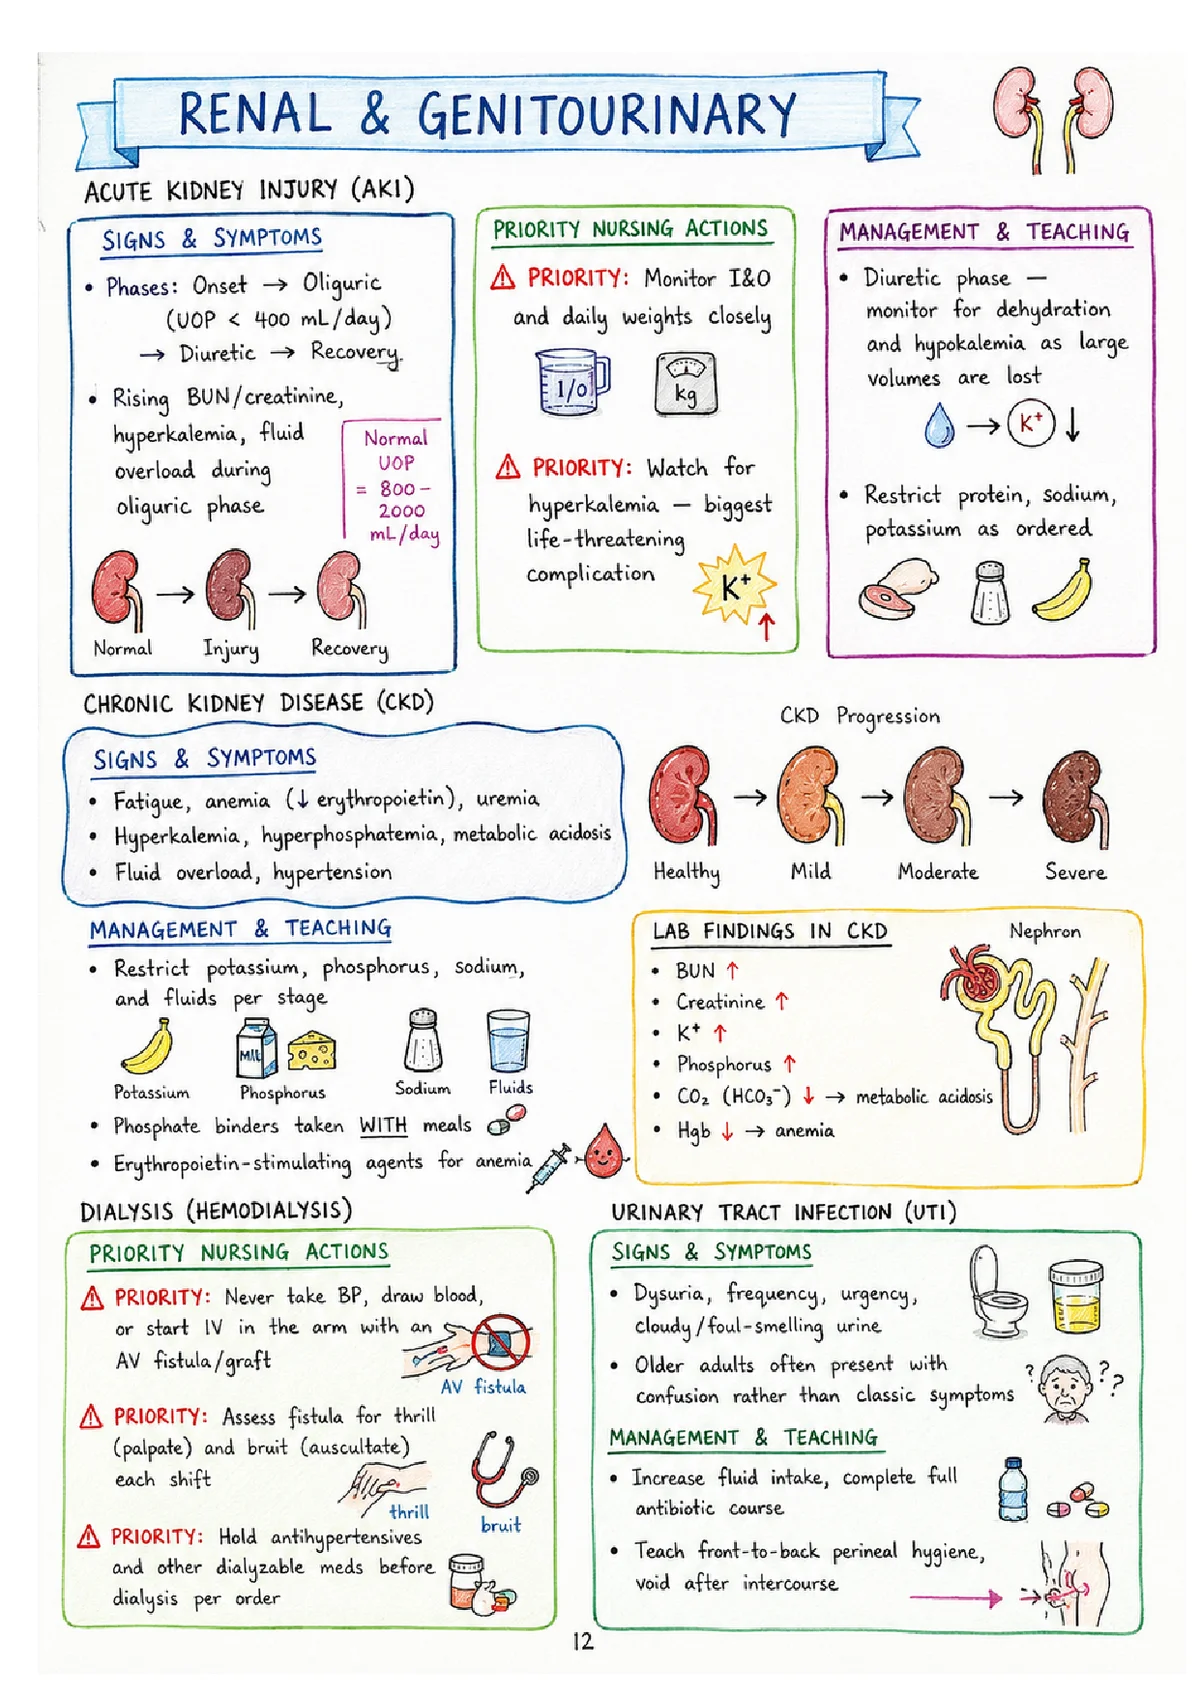 RENAL & GENITOURINARY
ACUTE KIDNEY INJURY (AKI)
SIGNS & SYMPTOMS
• Phases: Onset → Oliguric
(UOP < 400 mL/day)
→ Diuretic → Recovery.
• Rising BUN/creatinine,
hyperkalemia, fluid
overload during
oliguric phase
Normal
UOP
= 800-
2000
mL/day
Normal
Injury
Recovery
PRIORITY NURSING ACTIONS
PRIORITY: Monitor I&O
and daily weights closely
I/O
kg
PRIORITY: Watch for
hyperkalemia — biggest
life-threatening
complication
K+ ↑
MANAGEMENT & TEACHING
• Diuretic phase —
monitor for dehydration
and hypokalemia as large
volumes are lost
→ K+ ↓
• Restrict protein, sodium,
potassium as ordered
CHRONIC KIDNEY DISEASE (CKD)
SIGNS & SYMPTOMS
• Fatigue, anemia (↓ erythropoietin), uremia
• Hyperkalemia, hyperphosphatemia, metabolic acidosis
• Fluid overload, hypertension
CKD Progression
Healthy
Mild
Moderate
Severe
MANAGEMENT & TEACHING
• Restrict potassium, phosphorus, sodium,
and fluids per stage
Milk
Potassium
Phosphorus
Sodium
Fluids
• Phosphate binders taken WITH meals
• Erythropoietin-stimulating agents for anemia
LAB FINDINGS IN CKD
Nephron
• BUN ↑
• Creatinine ↑
• K+ ↑
• Phosphorus ↑
• CO₂ (HCO₃⁻) ↓ → metabolic acidosis
• Hgb ↓ → anemia
DIALYSIS (HEMODIALYSIS)
PRIORITY NURSING ACTIONS
PRIORITY: Never take BP, draw blood,
or start IV in the arm with an
AV fistula/graft
AV fistula
PRIORITY: Assess fistula for thrill
(palpate) and bruit (auscultate)
each shift
thrill
bruit
PRIORITY: Hold antihypertensives
and other dialyzable meds before
dialysis per order
URINARY TRACT INFECTION (UTI)
SIGNS & SYMPTOMS
• Dysuria, frequency, urgency,
cloudy/foul-smelling urine
• Older adults often present with
confusion rather than classic symptoms
? ???
MANAGEMENT & TEACHING
• Increase fluid intake, complete full
antibiotic course
• Teach front-to-back perineal hygiene,
void after intercourse
12